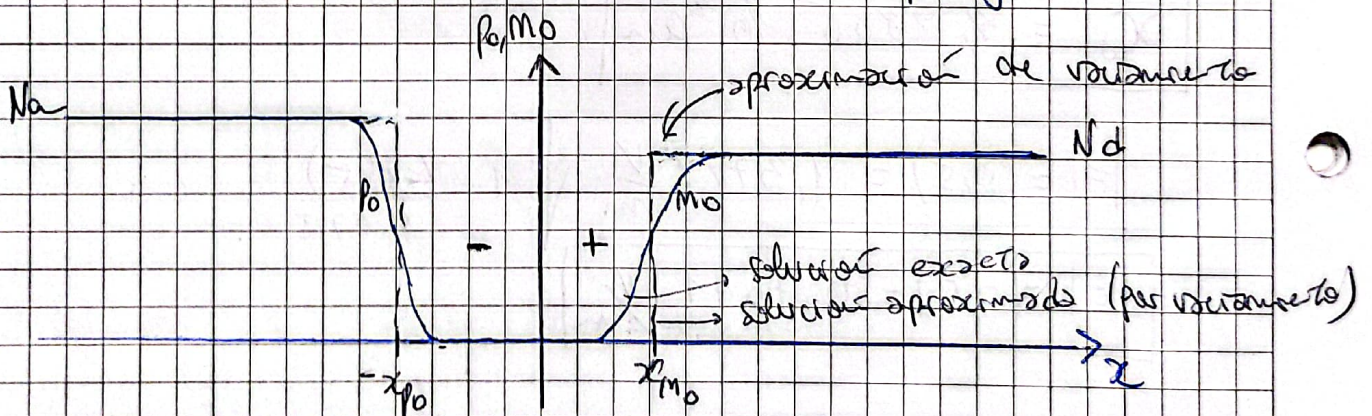 po, mo
aproximación de vaciamiento
Na
Nd
po
mo
-
+
solución exacta
solución aproximada (por vaciamiento)
-xpo
xmo
x